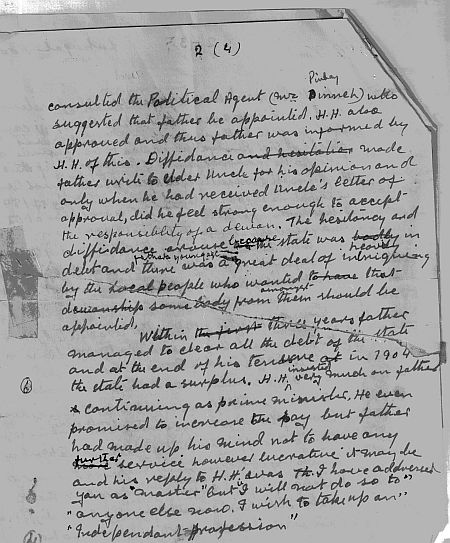 2 (4)
Pinhay
consulted the Political Agent (Mr Dinneh) who
suggested that father be appointed. H.H. also
approved and thus father was informed by
H.H. of this. Diffidance and hesitation made
father write to Elder Uncle for his opinion and
only when he had received Uncle's letter of
approval, did he feel strong enough to accept
the responsibility of a dewan. The hesitancy and
diffidance arouse because the state was badly in
heavily
debt and there was a great deal of intriguing
by the local people who wanted to have that
amongst
dewanship some body from them should be
appointed.
Within the first three years father
managed to clear all the debt of the state
and at the end of his tenure at in 1904
the state had a surplus. H.H. insisted very much on father
continuing as prime minister. He even
promised to increase the pay but father
had made up his mind not to have any
further
more service however lucrative it may be
and his reply to H.H. was "I have addressed
you as "master" but "I will not do so to"
"anyone else now. I wish to take up an"
"Independant profession"